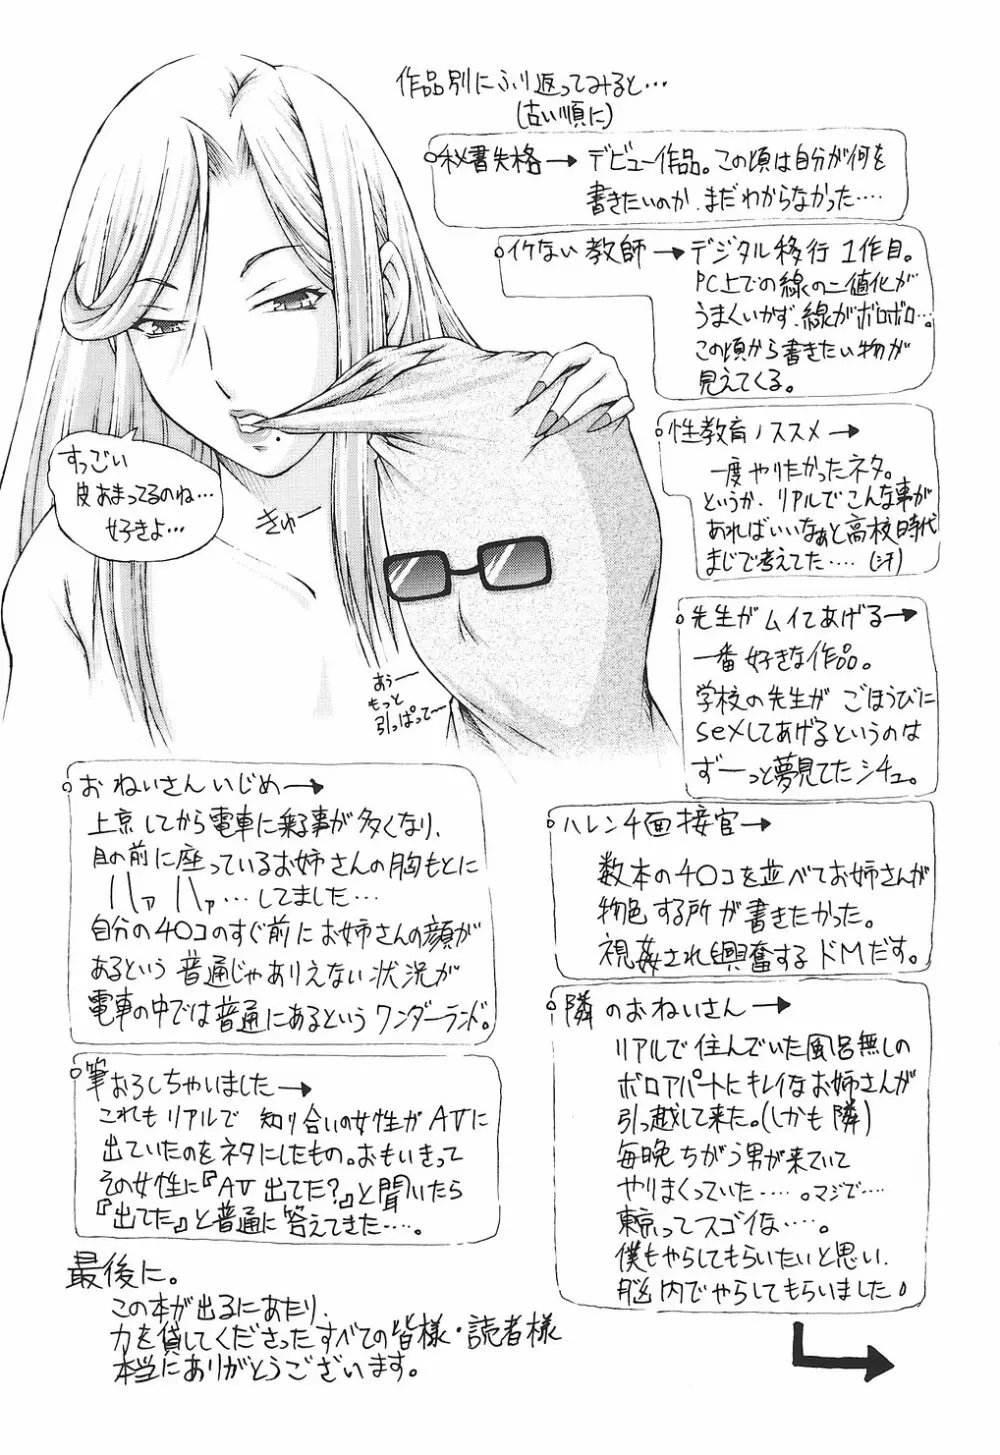 作品別にふり返ってみると…
(古い順に)
秘書失格→デビュー作品。この頃は自分が何を
書きたいのか、まだわからなかった‥‥
イケない教師→デジタル移行1作目。
PC上での線の二値化が
うまくいかず、線がボロボロ…。
この頃から書きたい物が
見えてくる。
性教育ノススメ→
一度やりたかったネタ。
というか、リアルでこんな事が
あればいいなぁと高校時代
まじで考えてた‥‥(汗)
先生がムイてあげる→
一番好きな作品。
学校の先生がごほうびに
sexしてあげるというのは
ずーっと夢見てたシチュ。
すっごい
皮あまってるのね…
好きよ…
きゅー
おぅー
もっと
引っぱって〜
おねいさんいじめ→
上京してから電車に乗る事が多くなり、
目の前に座っているお姉さんの胸もとに
ハァハァ…してました…
自分のチ○コのすぐ前にお姉さんの顔が
あるという普通じゃありえない状況が
電車の中では普通にあるというワンダーランド。
ハレンチ面接官→
数本のチ○コを並べてお姉さんが
物色する所が書きたかった。
視姦され興奮するドMだす。
筆おろしちゃいました→
これもリアルで知り合いの女性がAVに
出ていたのをネタにしたもの。おもいきって
その女性に『AV出てた?』と聞いたら
『出てた』と普通に答えてきた‥‥。
隣のおねいさん→
リアルで住んでいた風呂無しの
ボロアパートにキレイなお姉さんが
引っ越して来た。(しかも隣)
毎晩ちがう男が来ていて
やりまくっていた‥‥。マジで‥‥
東京ってスゴイな‥‥。
僕もやらしてもらいたいと思い、
脳内でやらしてもらいました。
最後に。
この本が出るにあたり、
力を貸してくださったすべての皆様・読者様
本当にありがとうございます。